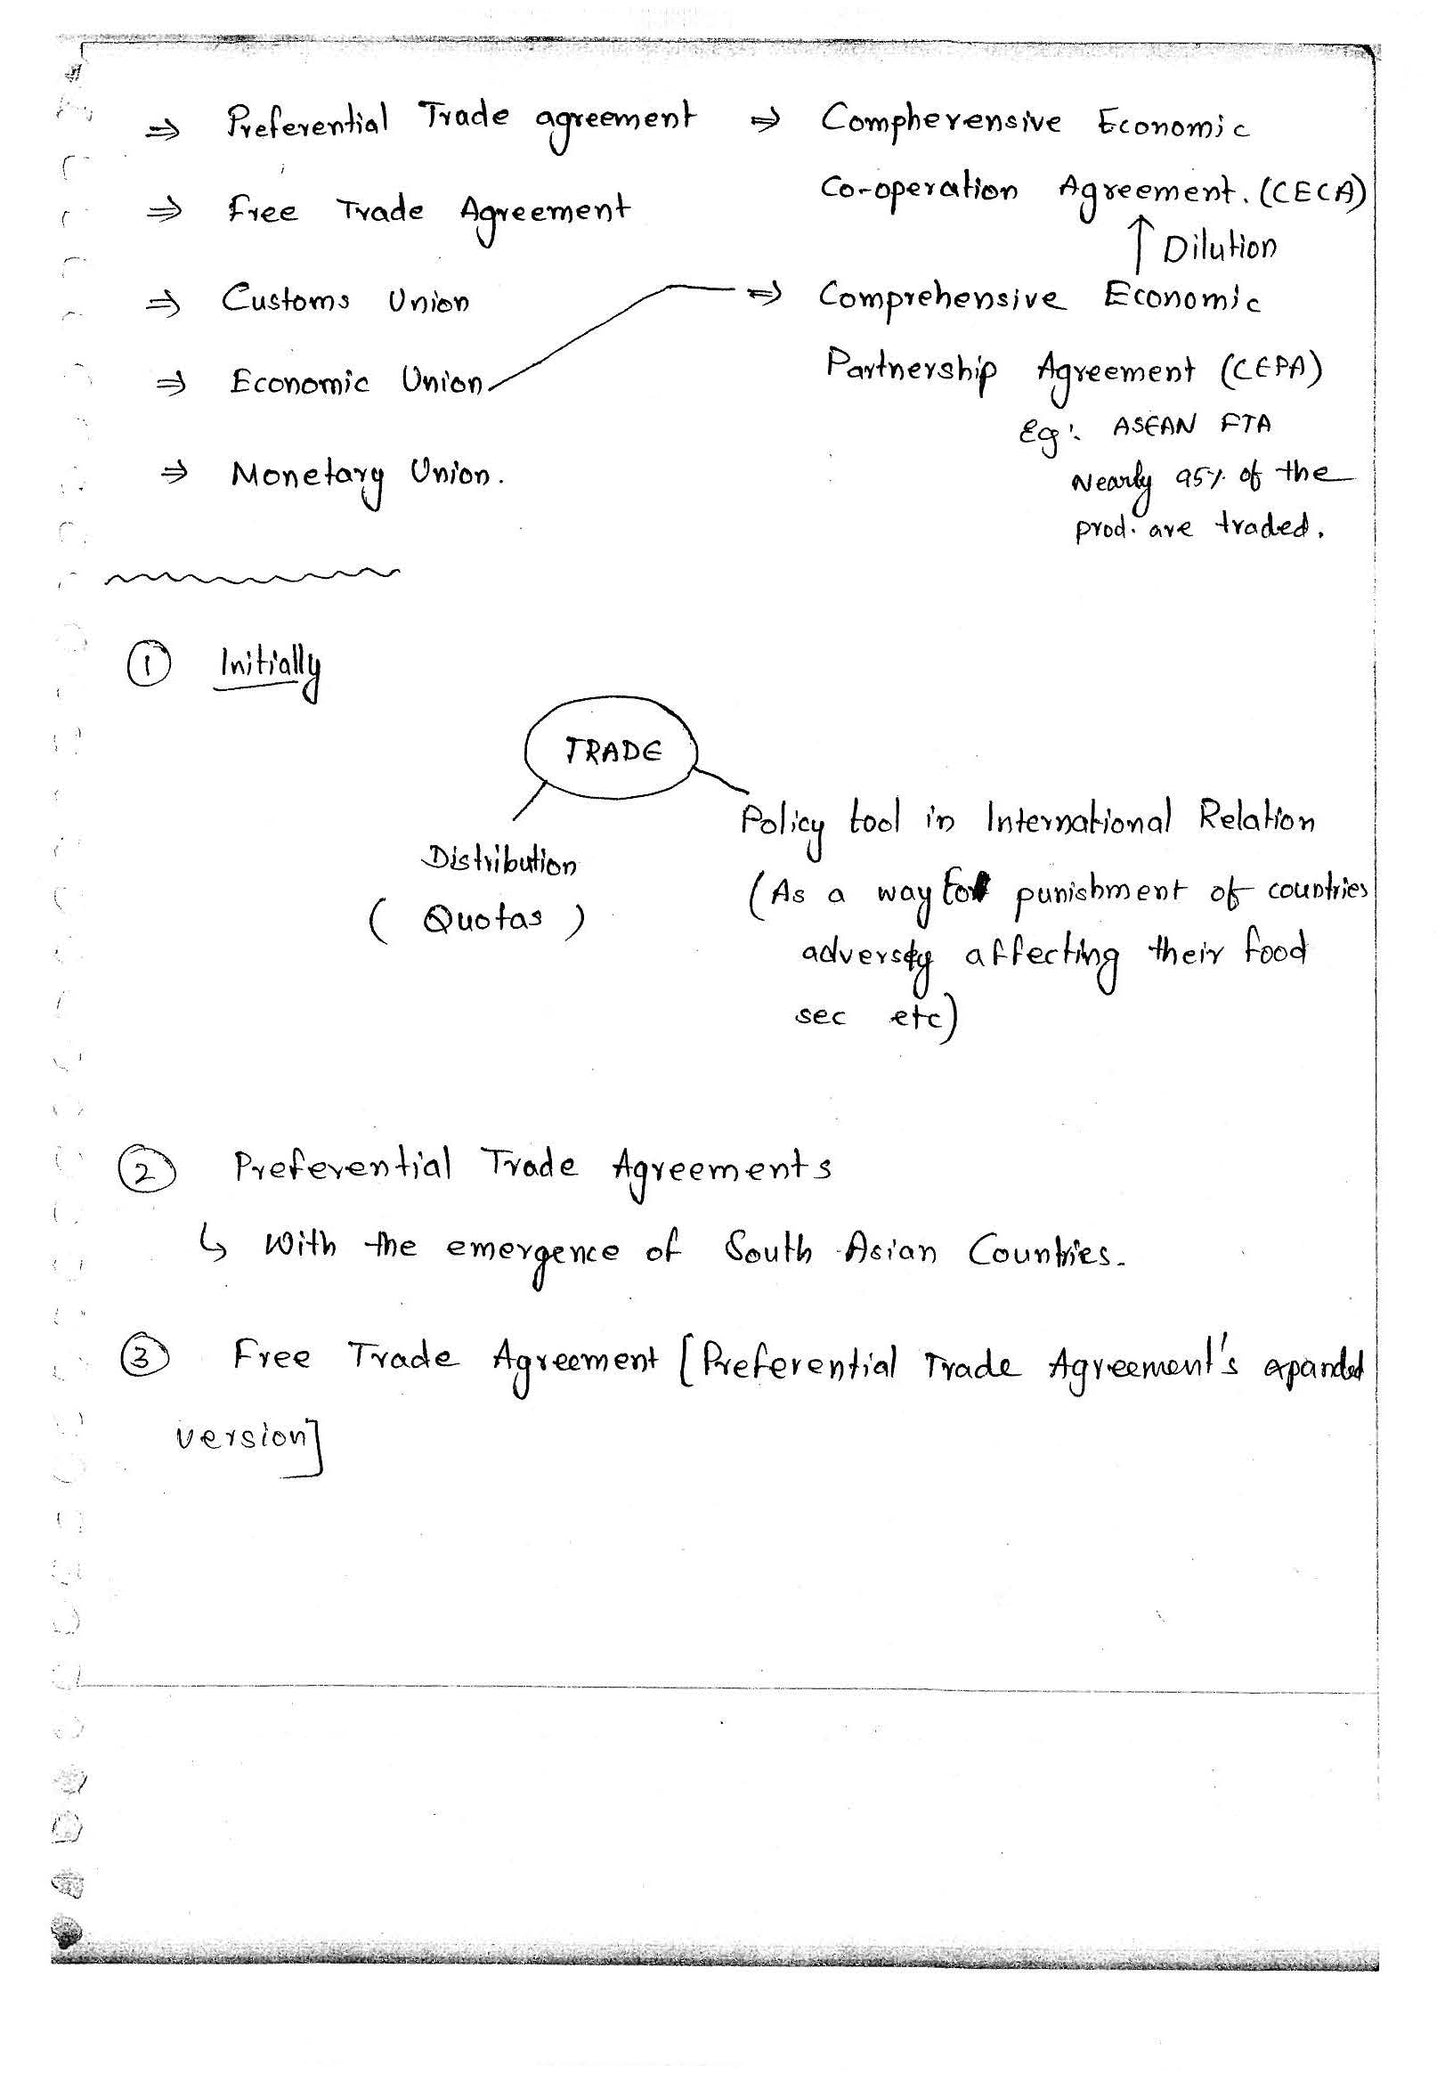 ⇒ Preferential Trade agreement
⇒ Free Trade Agreement
⇒ Customs Union
⇒ Economic Union
⇒ Monetary Union.
⇒ Compherensive Economic
Co-operation Agreement. (CECA)
↑ Dilution
⇒ Comprehensive Economic
Partnership Agreement (CEPA)
Eg: ASEAN FTA
Nearly 95% of the
prod. are traded.
① Initially
TRADE
Distribution
( Quotas )
Policy tool in International Relation
(As a way for punishment of countries
adversly affecting their food
sec etc)
② Preferential Trade Agreements
↳ With the emergence of South Asian Countries.
③ Free Trade Agreement [Preferential Trade Agreement's expanded
version]